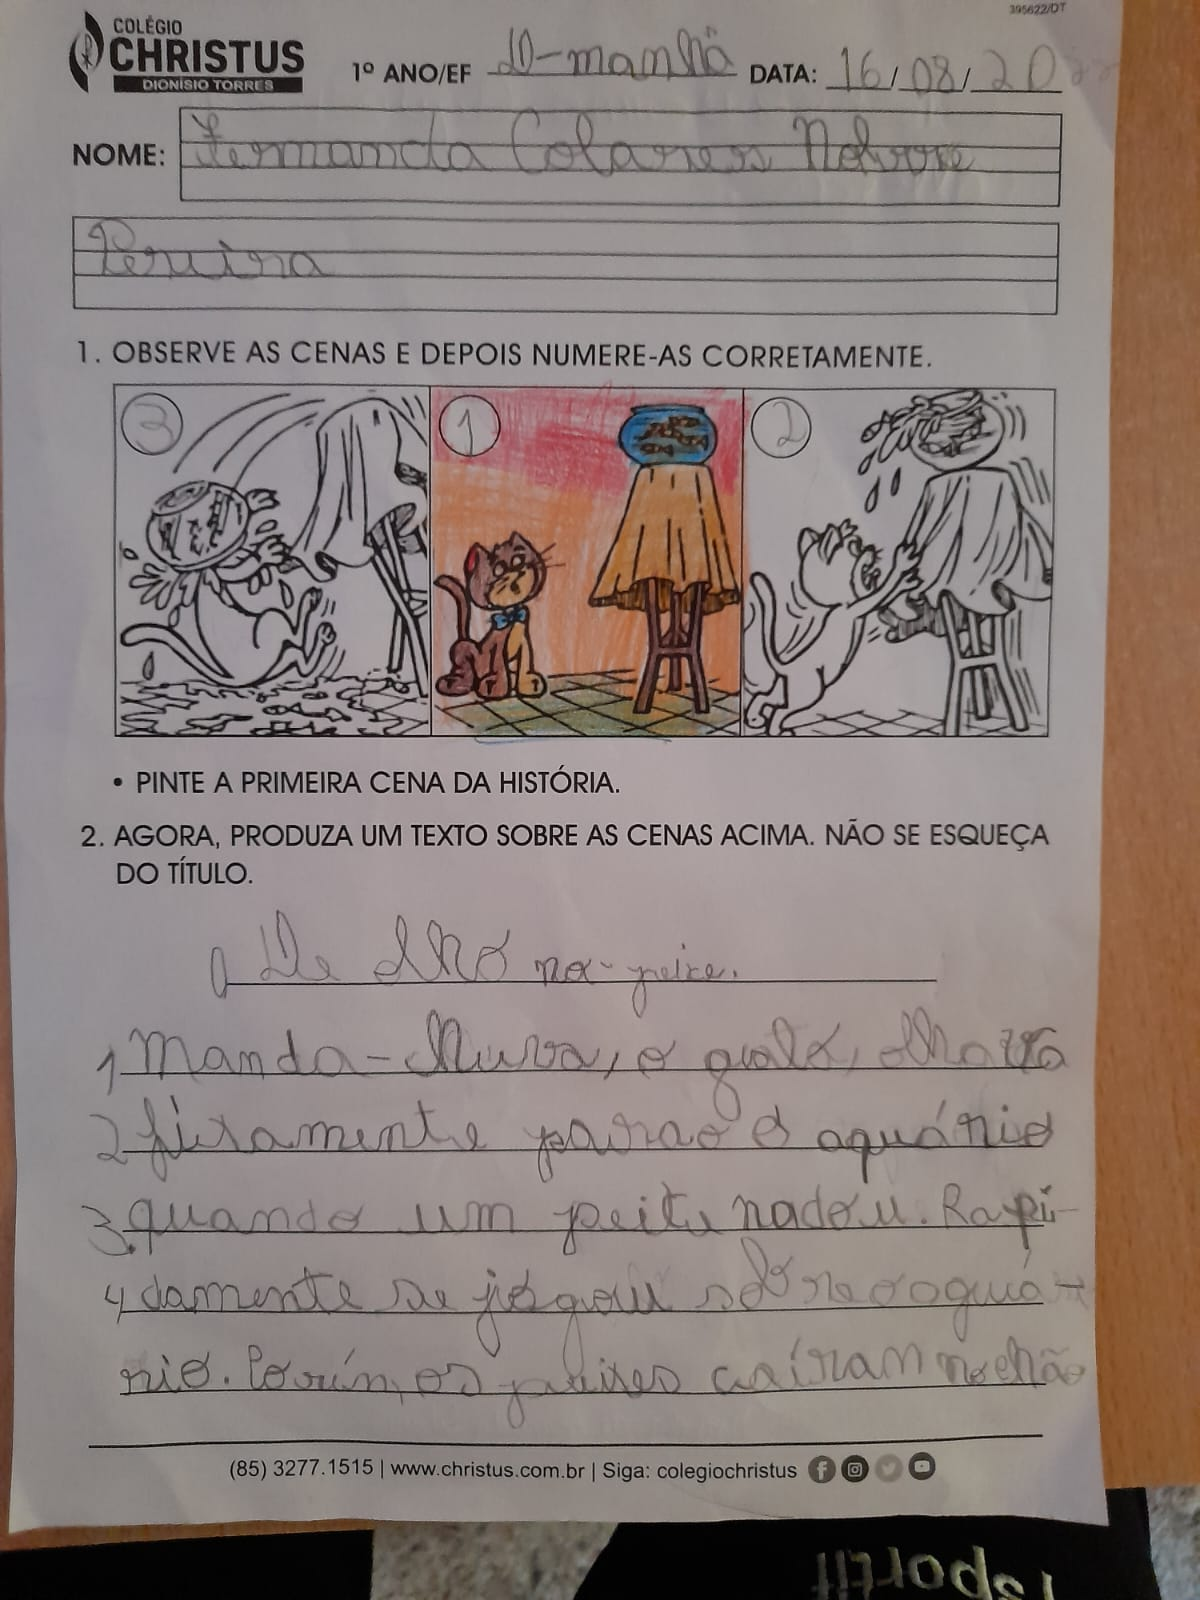 395622/DT
COLÉGIO
CHRISTUS
DIONÍSIO TORRES
1º ANO/EF D-manhã DATA: 16/08/20
NOME: Fernanda Colares Nobre
Pereira
1. OBSERVE AS CENAS E DEPOIS NUMERE-AS CORRETAMENTE.
3 1 2
• PINTE A PRIMEIRA CENA DA HISTÓRIA.
2. AGORA, PRODUZA UM TEXTO SOBRE AS CENAS ACIMA. NÃO SE ESQUEÇA
DO TÍTULO.
De olho no peixe.
1 Manda-Chuva, o gato, olhava
2 fixamente para o aquário
3. quando um peixe nadou. Rapi-
4 damente se jogou sobre o aquá-
rio. Porém, os peixes caíram no chão
(85) 3277.1515 | www.christus.com.br | Siga: colegiochristus